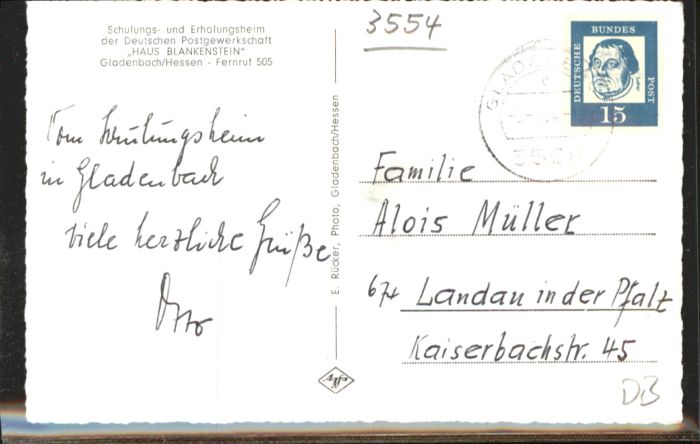 Schulungs- und Erholungsheim
der Deutschen Postgewerkschaft
„HAUS BLANKENSTEIN"
Gladenbach/Hessen - Fernruf 505
3554
DEUTSCHE BUNDES POST
Luther
15
Vom Schulungsheim
in Gladenbach
viele herzliche Grüße
Otto
E. Rücker, Photo, Gladenbach/Hessen
Agfa
Familie
Alois Müller
674 Landau in der Pfalz
Kaiserbachstr. 45
DB